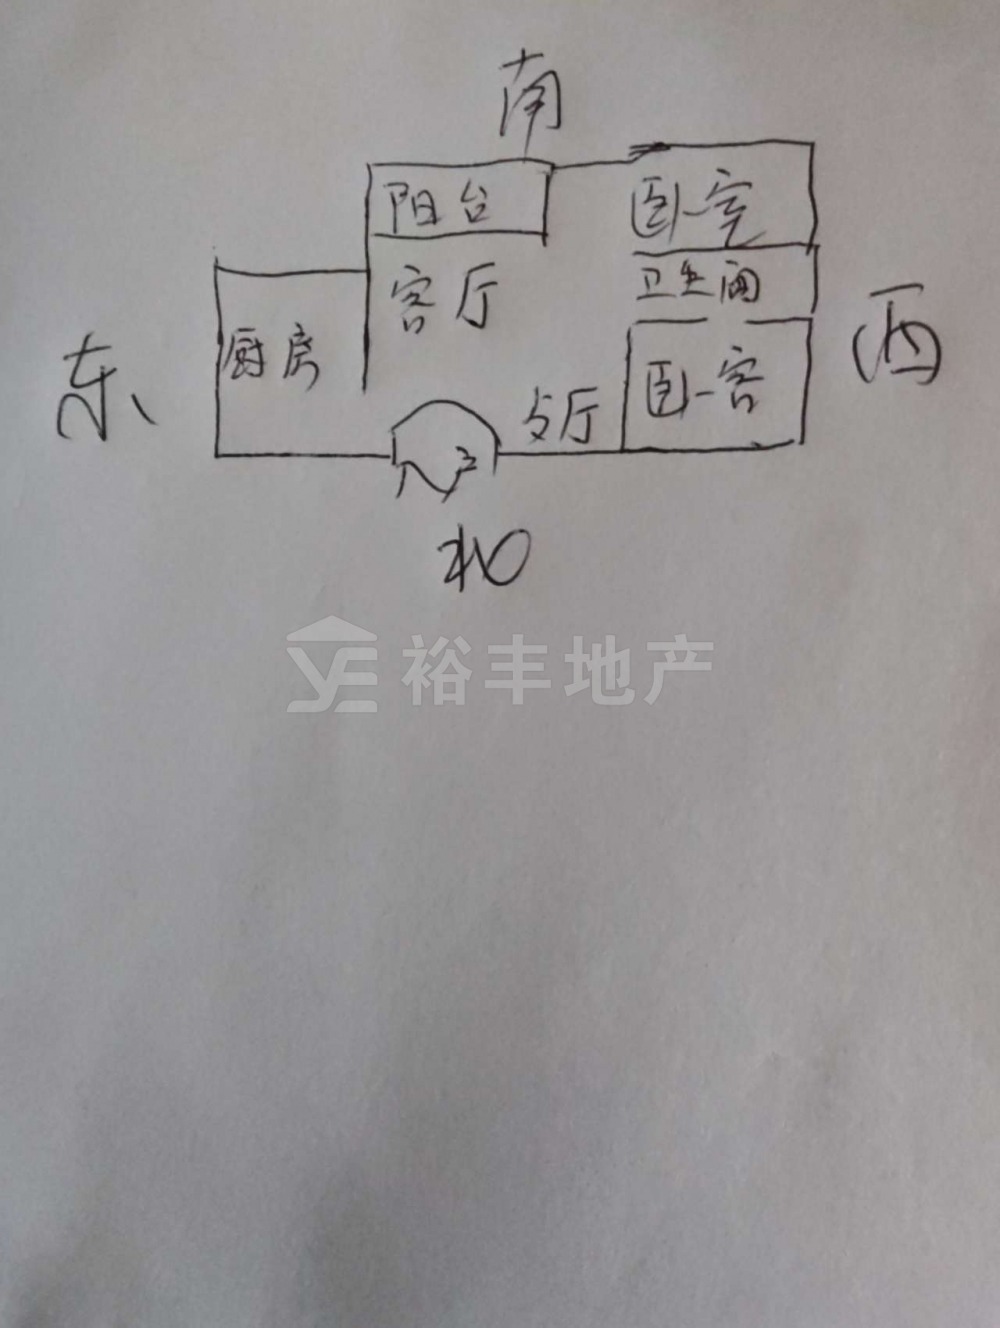 南
阳台
卧室
客厅
卫生间
东
厨房
西
卧客
厅
入户
北
裕丰地产